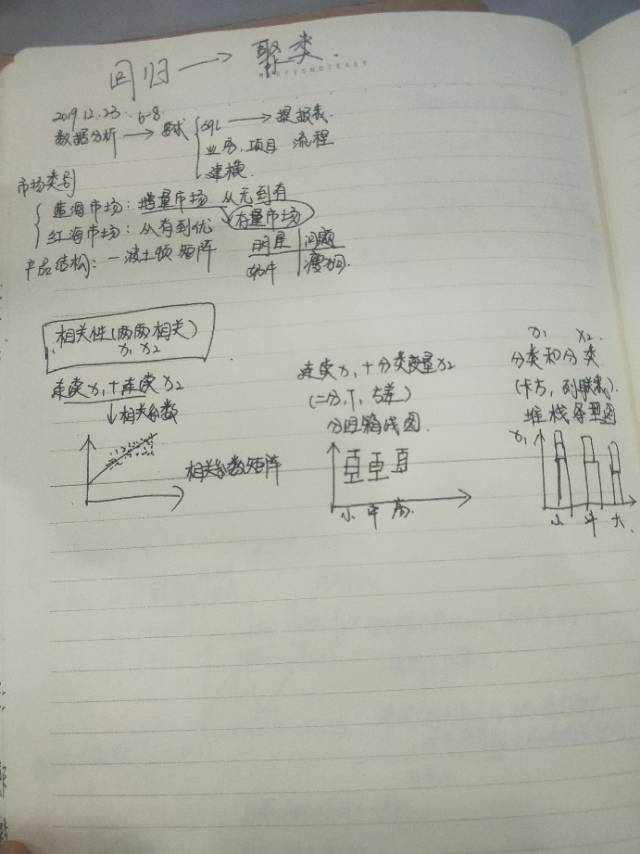 回归 → 聚类.
2019.12.23. 6-8.
数据分析 → 要求 { SQL → 提报表.
业务.项目 流程
建模.
市场类别
蓝海市场：增量市场 从无到有
红海市场：从有到优 存量市场
产品结构：一波士顿矩阵
明星 问题
奶牛 瘦狗.
相关性(两两相关)
x₁ x₂
连续x₁+连续x₂
↓相关系数
相关系数矩阵
连续x₁+分类变量x₂
(二分,T,方差)
分组箱线图.
小 中 高.
x₁ x₂.
分类和分类
(卡方,列联表).
堆栈条型图
x₁
小 中 大.